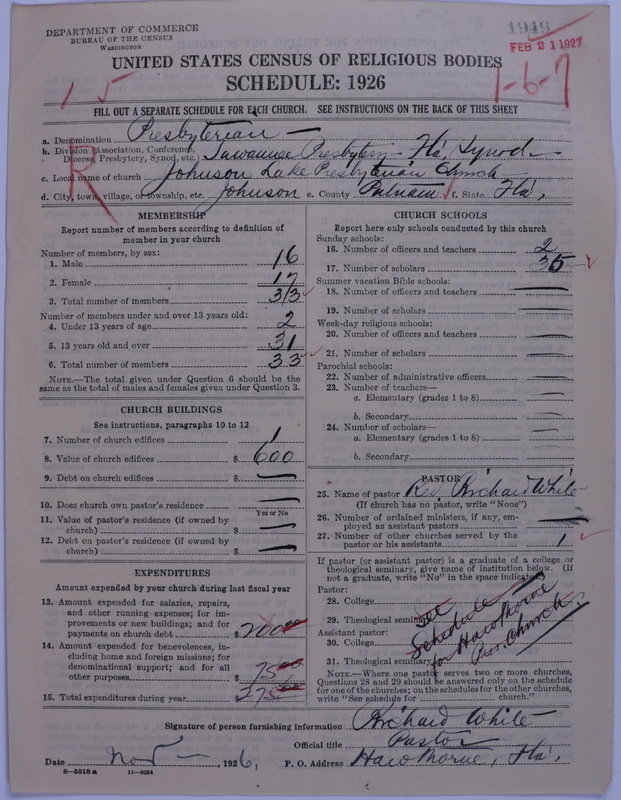 DEPARTMENT OF COMMERCE
BUREAU OF THE CENSUS
WASHINGTON
1949
FEB 21 1927
UNITED STATES CENSUS OF RELIGIOUS BODIES
SCHEDULE: 1926
1-6-7
15
FILL OUT A SEPARATE SCHEDULE FOR EACH CHURCH. SEE INSTRUCTIONS ON THE BACK OF THIS SHEET
R
a. Denomination Presbyterian
b. Division (Association, Conference, Diocese, Presbytery, Synod, etc. Suwannee Presbytery - Fla, Synod
c. Local name of church Johnson Lake Presbyterian Church
d. City, town, village, or township, etc. Johnson e. County Putnam f. State Fla,
MEMBERSHIP
Report number of members according to definition of
member in your church
Number of members, by sex:
1. Male 16
2. Female 17
3. Total number of members 33
Number of members under and over 13 years old:
4. Under 13 years of age 2
5. 13 years old and over 31
6. Total number of members 33
NOTE.—The total given under Question 6 should be the
same as the total of males and females given under Question 3.
CHURCH BUILDINGS
See instructions, paragraphs 10 to 12
7. Number of church edifices 1
8. Value of church edifices $ 600
9. Debt on church edifices $ —
10. Does church own pastor's residence —
Yes or No
11. Value of pastor's residence (if owned by
church) $ —
12. Debt on pastor's residence (if owned by
church) $ —
EXPENDITURES
Amount expended by your church during last fiscal year
13. Amount expended for salaries, repairs,
and other running expenses; for im-
provements or new buildings; and for
payments on church debt $ 200 00
14. Amount expended for benevolences, in-
cluding home and foreign missions; for
denominational support; and for all
other purposes $ 75 00
15. Total expenditures during year $ 275 00
CHURCH SCHOOLS
Report here only schools conducted by this church
Sunday schools:
16. Number of officers and teachers 2
17. Number of scholars 35
Summer vacation Bible schools:
18. Number of officers and teachers —
19. Number of scholars —
Week-day religious schools:
20. Number of officers and teachers —
21. Number of scholars —
Parochial schools:
22. Number of administrative officers —
23. Number of teachers—
a. Elementary (grades 1 to 8) —
b. Secondary —
24. Number of scholars—
a. Elementary (grades 1 to 8) —
b. Secondary —
PASTOR
25. Name of pastor Rev. Richard White
(If church has no pastor, write "None")
26. Number of ordained ministers, if any, em-
ployed as assistant pastors —
27. Number of other churches served by the
pastor or his assistants 1
If pastor (or assistant pastor) is a graduate of a college or
theological seminary, give name of institution below. (If
not a graduate, write "No" in the space indicated)
Pastor:
28. College
29. Theological seminary
Assistant pastor:
30. College
31. Theological seminary
See
Schedule
for Hawthorne
Church
NOTE.—Where one pastor serves two or more churches,
Questions 28 and 29 should be answered only on the schedule
for one of the churches; on the schedules for the other churches,
write "See schedule for church."
Signature of person furnishing information Richard White
Official title Pastor
Date Nov — , 1926, P. O. Address Hawthorne, Fla,
8—5518 a 11—9034